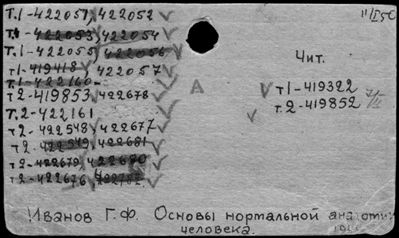 11/I 50
Т.1-422051, 422052
Т.1-422053, 422054
Т.1-422055, 422056
Т1-419418, 422057
Т.1-422160-
Т2-419853, 422678
Т.2-422161
Т2-422548, 422677
Т2-422549, 422681
Т2-422679, 422680
Т2-422676,
Чит.
Т1-419322
Т.2-419852
А
Иванов Г.Ф. Основы нормальной анатомии
человека.